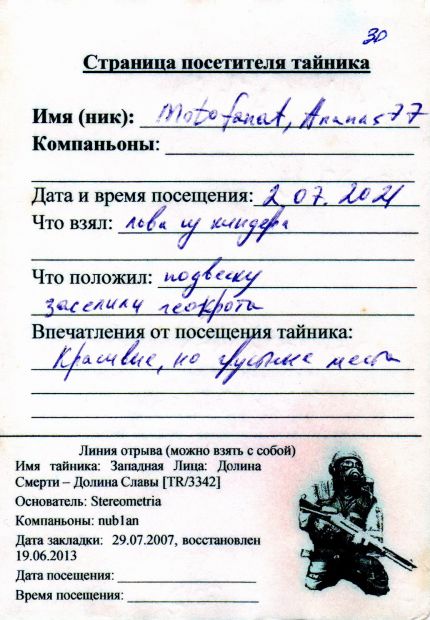 30
Страница посетителя тайника
Имя (ник): Motofanat, Ананас77
Компаньоны:
Дата и время посещения: 2.07.2021
Что взял: льва из киндера
Что положил: подвеску
заселили геокрота
Впечатления от посещения тайника:
Красивые, но грустные места
Линия отрыва (можно взять с собой)
Имя тайника: Западная Лица: Долина
Смерти – Долина Славы [TR/3342]
Основатель: Stereometria
Компаньоны: nub1an
Дата закладки: 29.07.2007, восстановлен
19.06.2013
Дата посещения:
Время посещения: